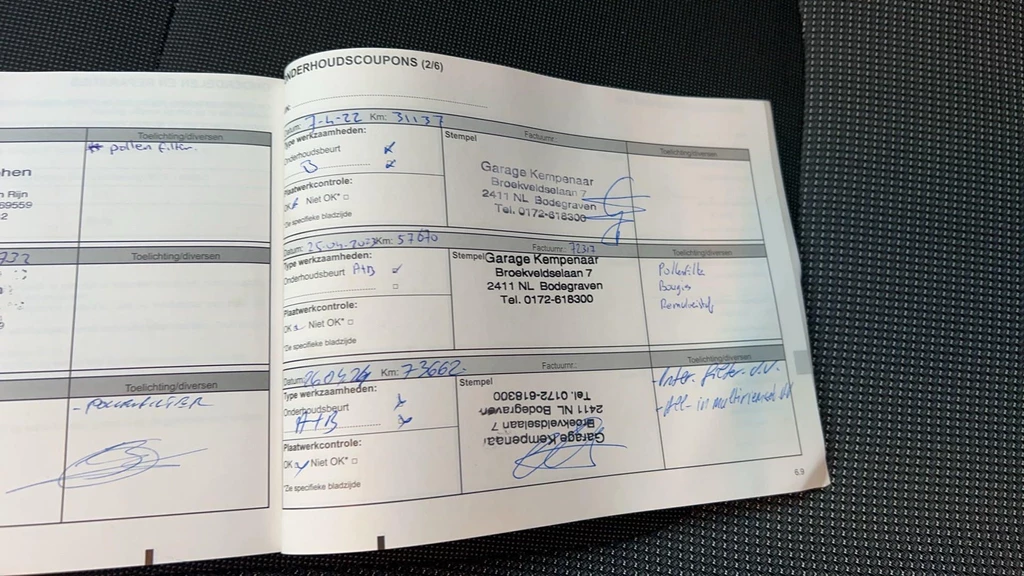 Toelichting/diversen
pollen filter.
hen
n Rijn
69559
2
Toelichting/diversen
Toelichting/diversen
- POLLENFILTER
ONDERHOUDSCOUPONS (2/6)
Datum: 7-4-22 Km: 31137
Factuurnr.:
Type werkzaamheden:
Onderhoudsbeurt
B
Plaatwerkcontrole:
OK Niet OK* □
*Zie specifieke bladzijde
Stempel
Garage Kempenaar
Broekveldselaan 7
2411 NL Bodegraven
Tel. 0172-618300
Toelichting/diversen
Datum: 25-04-2023 Km: 57070
Factuurnr.: 72317
Type werkzaamheden:
Onderhoudsbeurt A+B
□
Plaatwerkcontrole:
OK Niet OK* □
*Zie specifieke bladzijde
Stempel
Garage Kempenaar
Broekveldselaan 7
2411 NL Bodegraven
Tel. 0172-618300
Toelichting/diversen
Pollenfilter
Bougies
Remvloeistof
Datum: 260424 Km: 73662
Factuurnr.:
Type werkzaamheden:
Onderhoudsbeurt
A+B
Plaatwerkcontrole:
OK Niet OK* □
*Zie specifieke bladzijde
Stempel
Garage Kempenaar
Broekveldselaan 7
2411 NL Bodegraven
Tel. 0172-618300
Toelichting/diversen
- Inter. filter
- All-in
6.9